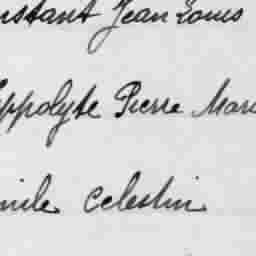 nstant Jean Louis
ippolyte Pierre Mari
mile Celestin